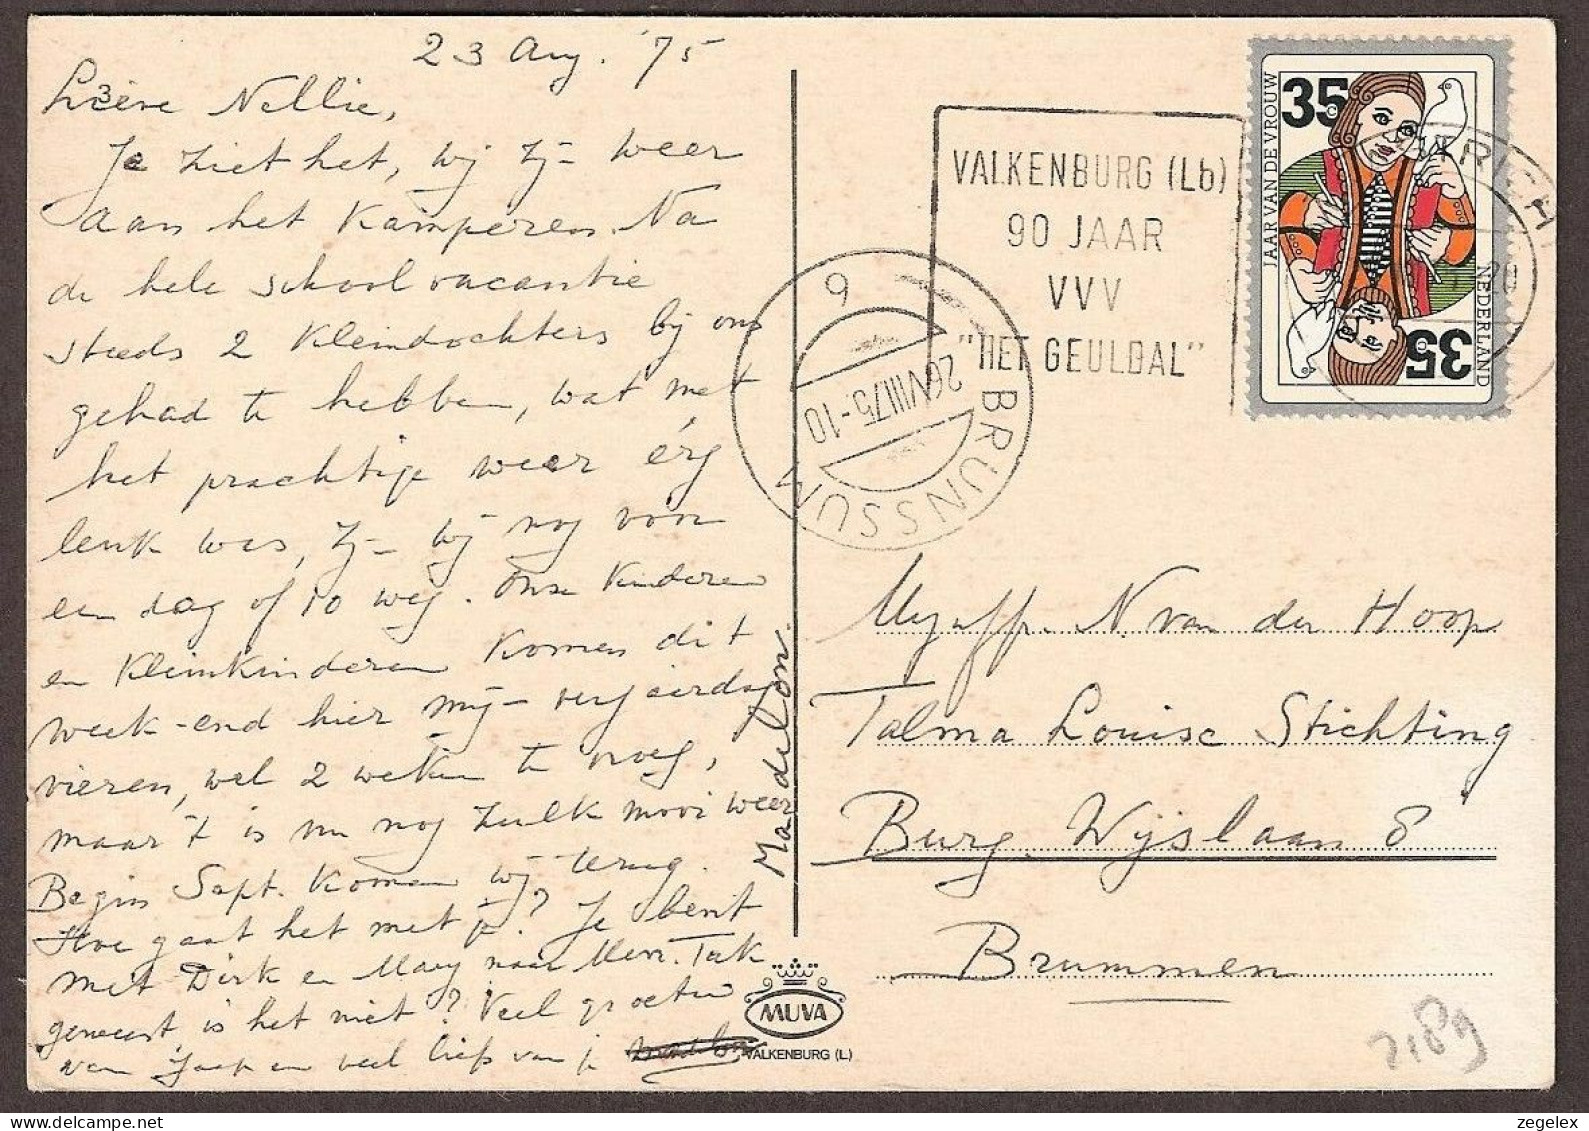 23 Aug. '75
Lieve Nellie,
Je ziet het, wij zijn weer
aan het kamperen. Na
de hele schoolvacantie
steeds 2 kleindochters bij ons
gehad te hebben, wat met
het prachtige weer érg
leuk was, zijn wij nog voor
een dag of 10 weg. Onze kinderen
en kleinkinderen komen dit
week-end hier mijn verjaardag
vieren, wel 2 weken te vroeg,
maar 't is nu nog zulk mooi weer
Begin Sept. komen wij terug.
Hoe gaat het met je? Je bent
met Dirk en Mary naar Mevr. Tak
geweest, is het niet? Veel groeten
van Jaap en veel liefs van je
Madelon.
VALKENBURG (Lb)
90 JAAR
VVV
"HET GEULDAL"
BRUNSSUM
9
26VIII75.-10
JAAR VAN DE VROUW
35
NEDERLAND
35
Mejuffr. N. van der Hoop
Talma Louise Stichting
Burg. Wijslaan 8
Brummen
MUVA
VALKENBURG (L.)
2189
zegelex